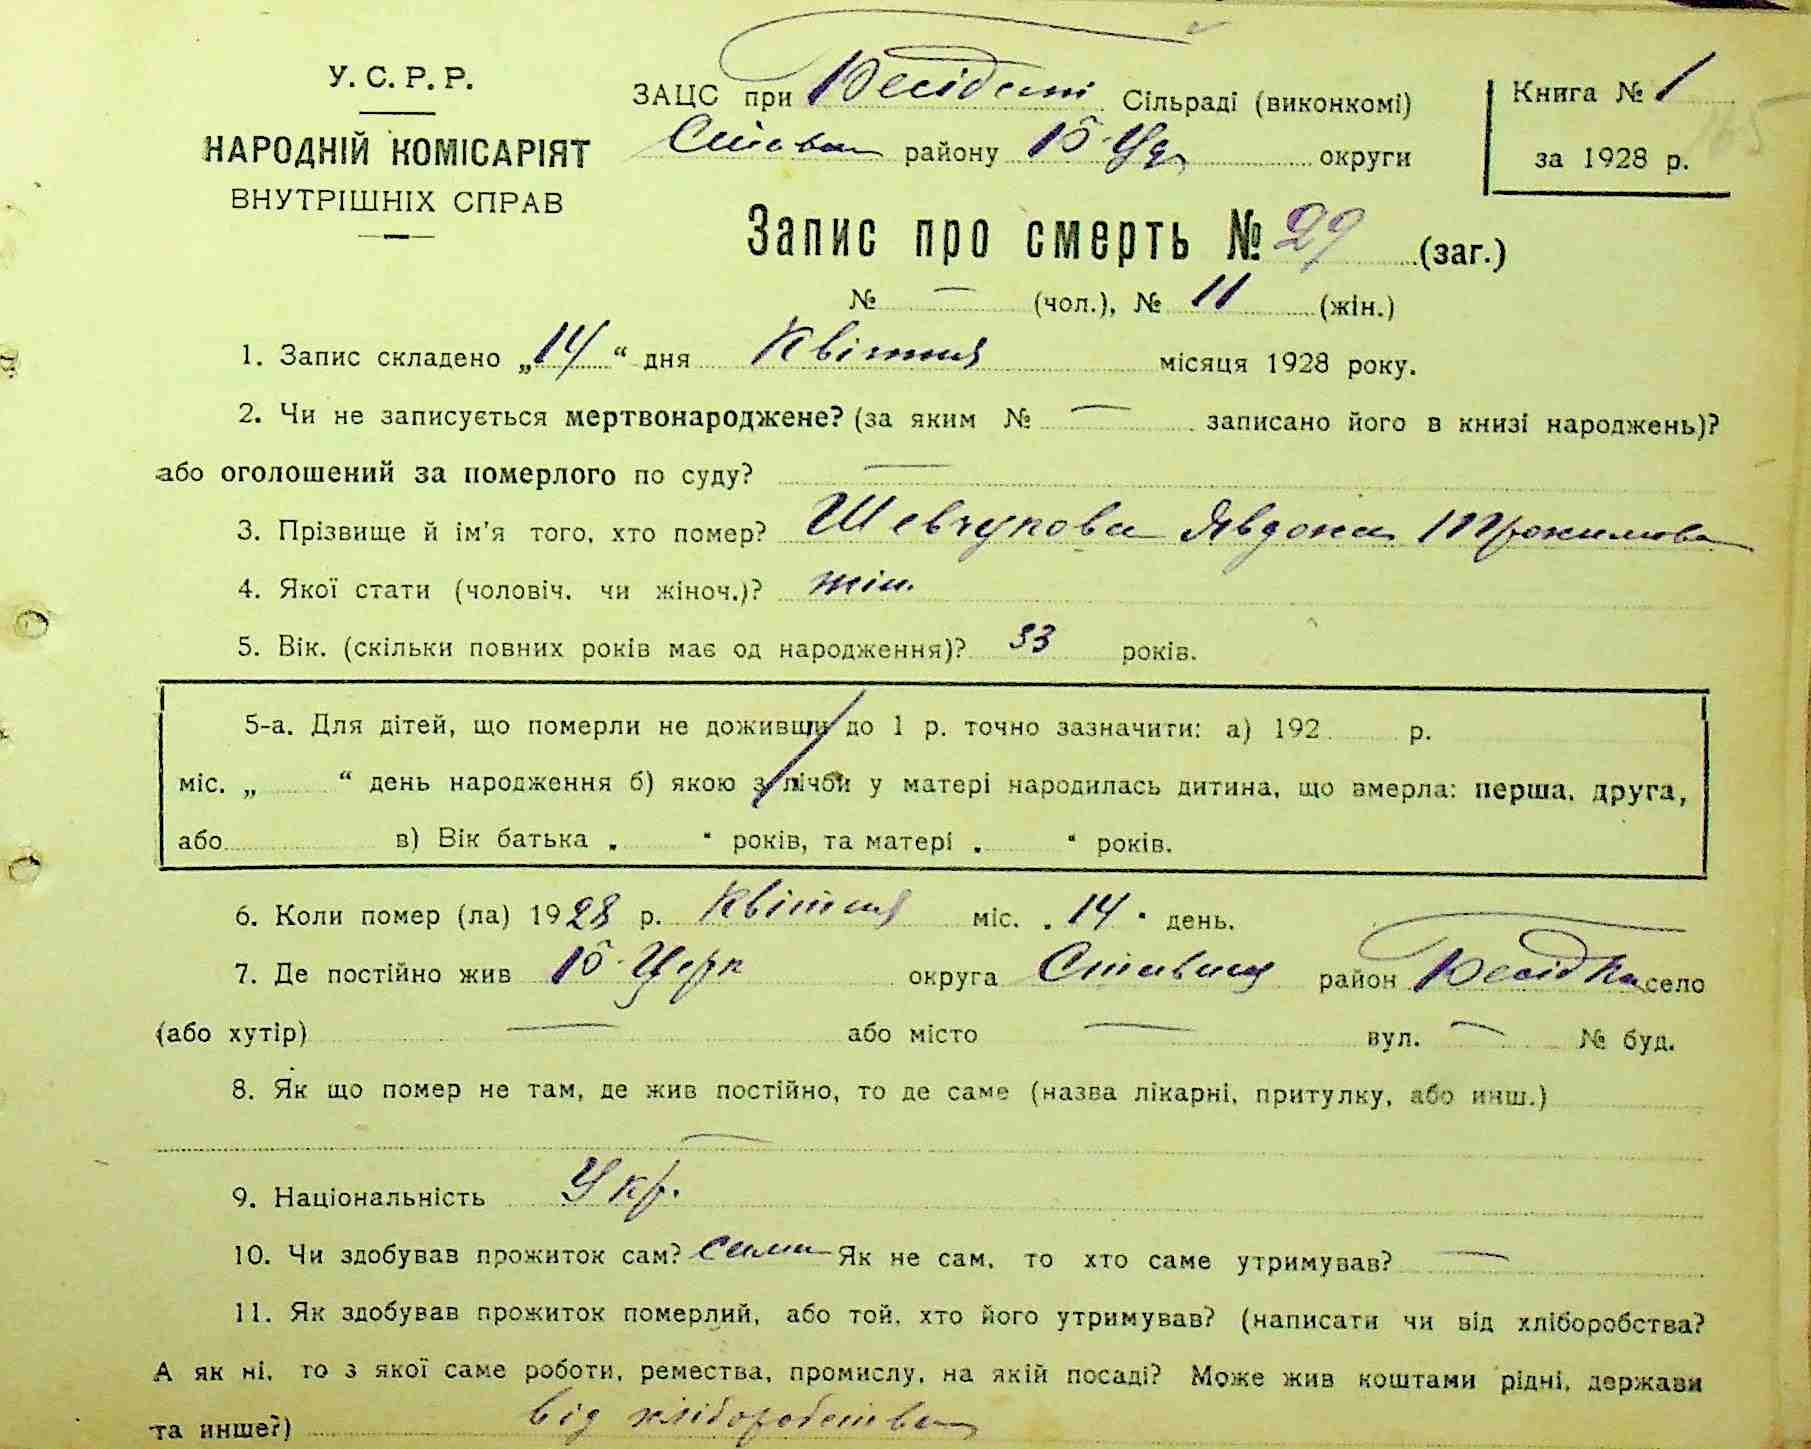 У. С. Р. Р.
НАРОДНІЙ КОМІСАРІЯТ
ВНУТРІШНІХ СПРАВ
ЗАЦС при Бесідські Сільраді (виконкомі)
Стави району Б-Це округи
Книга № 1
за 1928 р.
165
Запис про смерть № 29 (заг.)
№ — (чол.), № 11 (жін.)
1. Запис складено „14“ дня Квітня місяця 1928 року.
2. Чи не записується мертвонароджене? (за яким № — записано його в книзі народжень)?
або оголошений за померлого по суду? —
3. Прізвище й ім'я того, хто помер? Шевчукова Явдоха Трохимова
4. Якої стати (чоловіч. чи жіноч.)? жін.
5. Вік. (скільки повних років має од народження)? 33 років.
5-а. Для дітей, що померли не доживши до 1 р. точно зазначити: а) 192 р.
міс. „ “ день народження б) якою з лічби у матері народилась дитина, що вмерла: перша, друга,
або в) Вік батька „ “ років, та матері „ “ років.
6. Коли помер (ла) 1928 р. Квітня міс. „14“ день.
7. Де постійно жив Б-Церк округа Ставищ район Бесідка село
(або хутір) — або місто — вул. — № буд.
8. Як що помер не там, де жив постійно, то де саме (назва лікарні, притулку, або инш.)
—
9. Національність Укр.
10. Чи здобував прожиток сам? сама Як не сам, то хто саме утримував? —
11. Як здобував прожиток померлий, або той, хто його утримував? (написати чи від хліборобства?
А як ні, то з якої саме роботи, ремества, промислу, на якій посаді? Може жив коштами рідні, держави
та инше?) від хліборобства